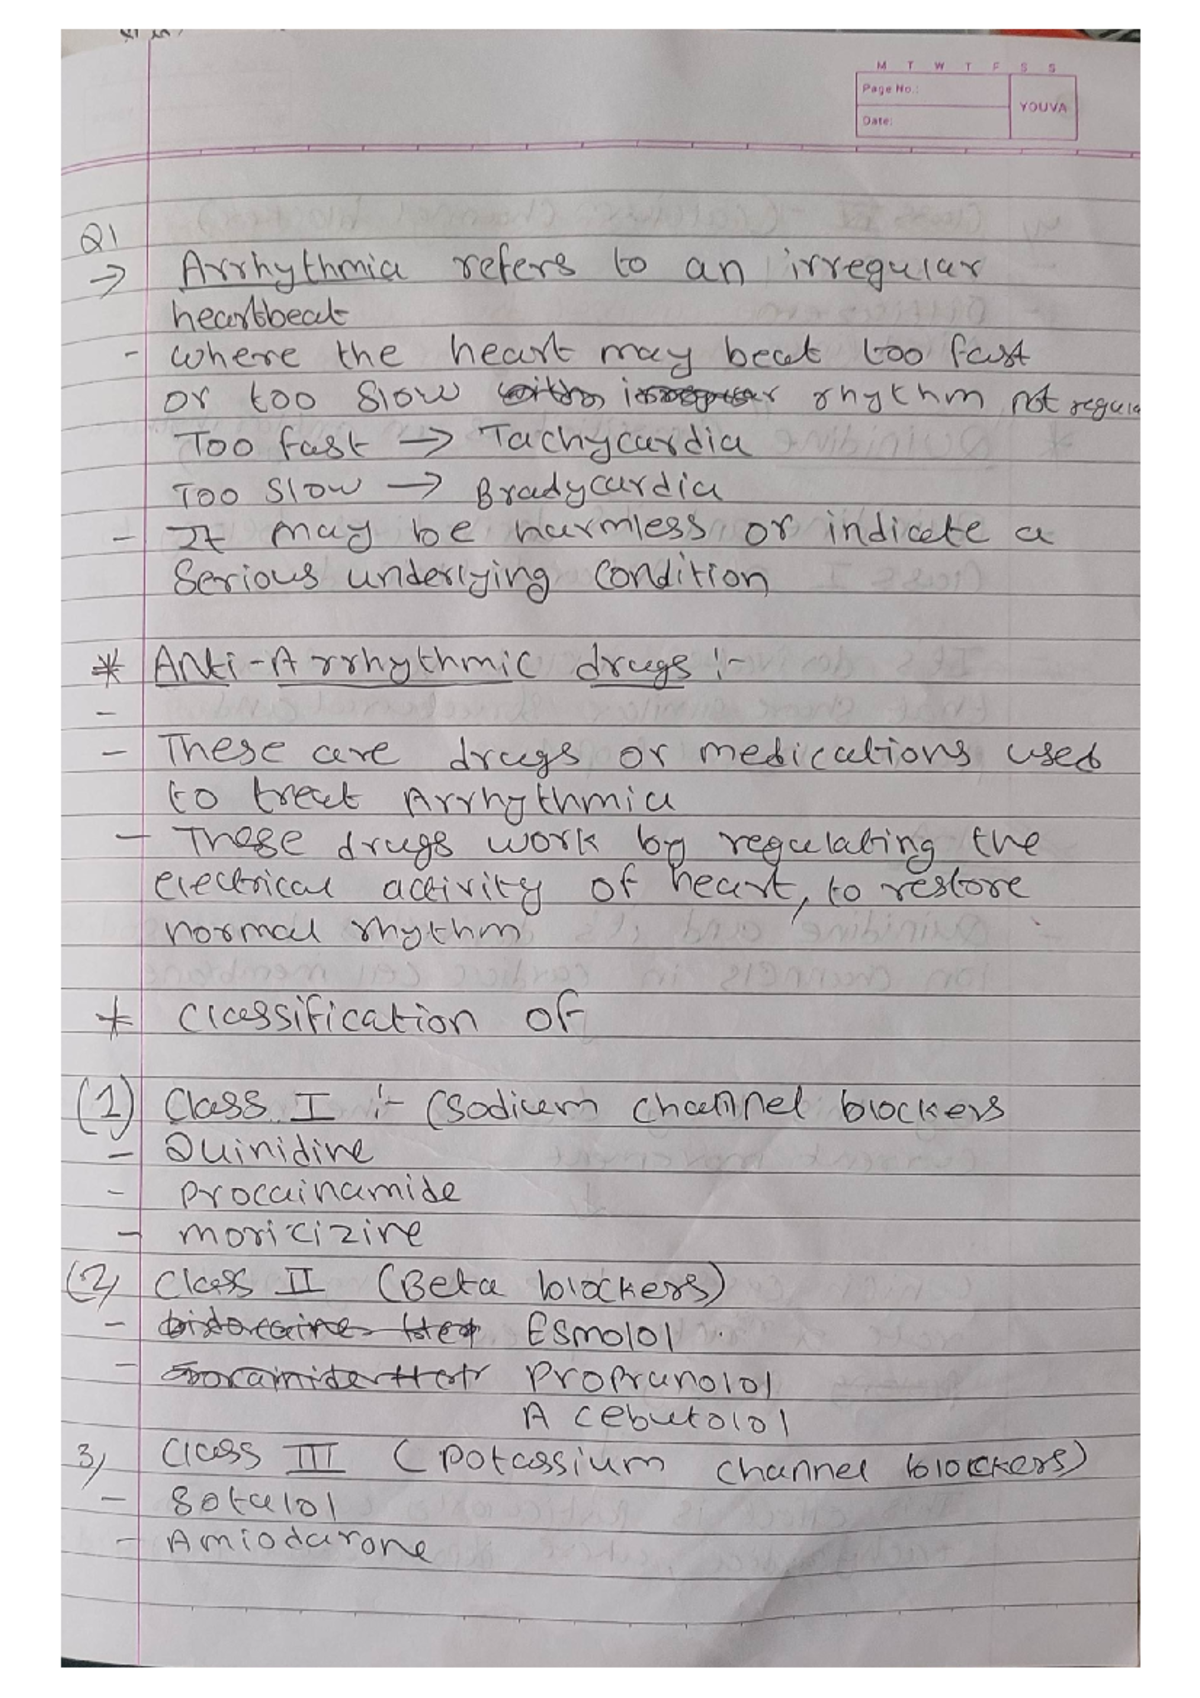 M T W T F S S
Page No.:
YOUVA
Date:
Q1
→ Arrhythmia refers to an irregular
heartbeat
- where the heart may beat too fast
or too slow with irregular rhythm not regula
Too fast → Tachycardia
Too slow → Bradycardia
- It may be harmless or indicate a
serious underlying condition
* Anti-Arrhythmic drugs :-
-
- These are drugs or medications used
to treat Arrhythmia
- These drugs work by regulating the
electrical activity of heart, to restore
normal rhythm
* Classification of
(1) Class I :- (Sodium channel blockers
- Quinidine
- Procainamide
- moricizine
(2) Class II (Beta blockers)
- Esmolol
- Propranolol
Acebutolol
3) Class III (Potassium channel blockers)
- Sotalol
- Amiodarone